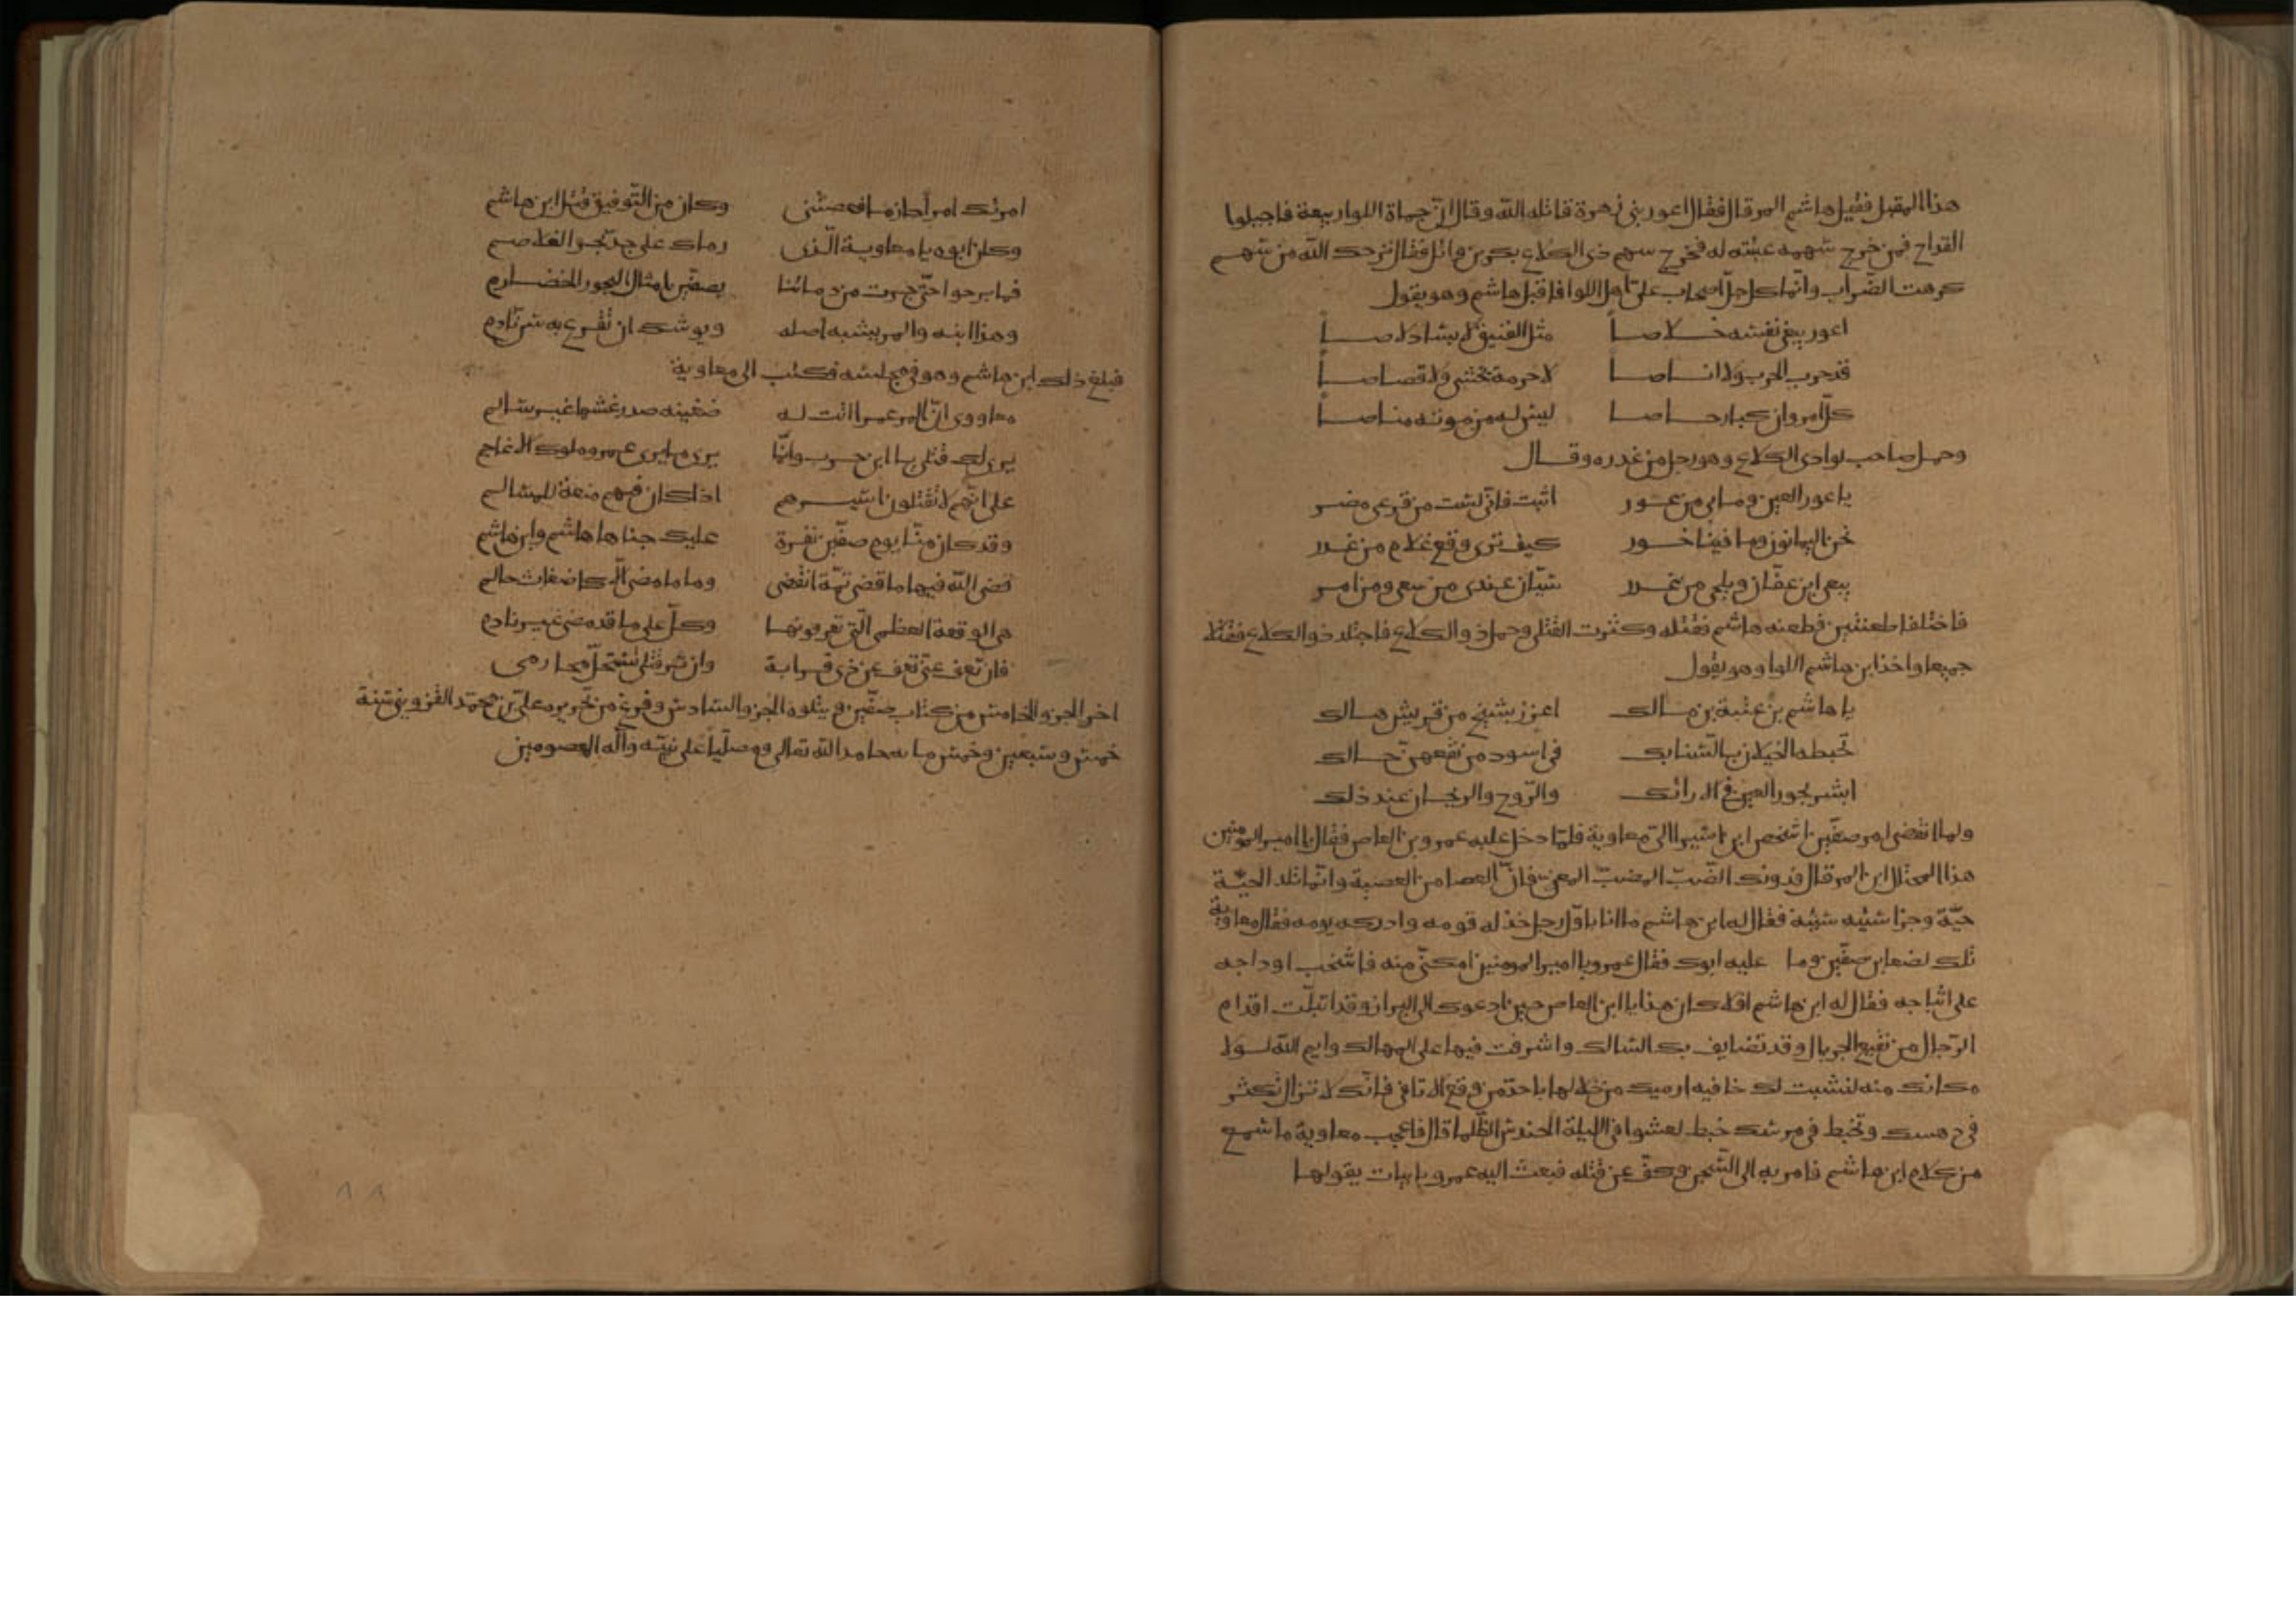 هذا المقبل فقيل هاشم المرقال فقال اعور بنى زهرة قاتله الله وقال ان حماة اللوا ربيعة فاجيلوا
القداح فمن خرج سهمه عبيته له فخرج سهم ذى الكلاع بكر بن وائل فقال ترحك الله من سهم
كرهت الضراب وانما كان جل اصحاب على اهل اللوا فاقبل هاشم وهو يقول
اعور يبغى نفسه خلاصا مثل الفنيق لابسا دلاصا
قد جرب الحرب ولا اناصا لا دية يخشى ولا قصاصا
كل امرو وان كبا وحاصا ليس له من موته مناصا
وحمل صاحب لوا ذى الكلاع وهو رجل من عذره وقال
يا عور العين وما بى من عور اثبت فانى لست من فرعى مضر
نحن اليمانون وما فينا خور كيف ترى وقع غلام من عذر
ينعى ابن عفان ويلحى من غدر سيان عندى من سعى ومن امر
فاختلفا طعنتين فطعنه هاشم فقتله وكثرت القتلى وحمل ذو الكلاع فاجتلد ذو الكلاع فقتلا
جميعا واخذ ابن هاشم اللوا وهو يقول
يا هاشم بن عتبة بن مالك اعزز بشيخ من قريش هالك
تخبطه الخيلان بالسنابك فى اسود من نقعهن حالك
ابشر بحور العين فى الارائك والروح والريحان عند ذلك
ولما انقضى امر صفين اشخص ابن اسيرا الى معاوية فلما دخل عليه عمرو بن العاص فقال يا امير المومنين
هذا المحتال ابن المرقال فدونك الضب المضب المعن فان العصا من العصية وانما تلد الحية
حية وجزا سيئه سيئه فقال له ابن هاشم ما انا باول رجل خذله قومه وادركه يومه فقال معاوية
تلك ضغاين صفين وما عليه ابوك فقال عمرو يا امير المومنين امكنى منه فاشخب اوداجه
على اثباجه فقال له ابن هاشم افلا كان هذا يا ابن العاص حين ادعوك الى البراز وقد ابتلت اقدام
الرجال من نقيع الجريال وقد تضايف بك المسالك واشرفت فيها على المهالك وايم الله لولا
مكانك منه لنشبت لك خافيه ارميك من خلالها باحد من وقع الاثافى فانك لا تزال تكثر
فى دهسك وتخبط فى مرسك خبط لعشوا فى الليلة الحندس الظلما قال فاعجب معاوية ما سمع
من كلام ابن هاشم فامر به الى السجن وكف عن قتله فبعث اليه عمرو بابيات يقولها
امرتك امرا حازما فعصيتنى وكان من التوفيق قتل ابن هاشم
وكان ابوه يا معاوية الذى رماك على جد بحز الغلاصم
فما برحوا حتى جرت من دمائنا بصفين امثال البحور الخضارم
وهذا ابنه والمر يشبه اصله ويوشك ان تقرع به سن نادم
فبلغ ذلك ابن هاشم وهو فى مجلسه فكتب الى معاوية
معاوى ان المر عمرا ابت له ضغينه صدر غشها غير سالم
يرى لك قتلى يا ابن حرب وانما يرى ما يرى عمرو ملوك الاعاجم
على انهم لا يقتلون اسيرهم اذا كان فيهم منعة للمسالم
وقد كان منا يوم صفين نفرة عليك جناها هاشم وابن هاشم
قضى الله فيها ما قضى ثمة انقضى وما ما مضى الا كاضغاث حالم
هى الوقعة العظمى التى تعرفونها وكل على ما قد مضى غير نادم
فان تعف عنى تعف عن ذى قرابة وان تر قتلى تستحل محارمى
اخر الجزو الخامس من كتاب صفين ويتلوه الجزو السادس وفرغ من تحريره على بن محمد القزوينى سنة
خمس وسبعين وخمس مايه حامدا لله تعالى ومصليا على نبيه وآله المعصومين
٨٨